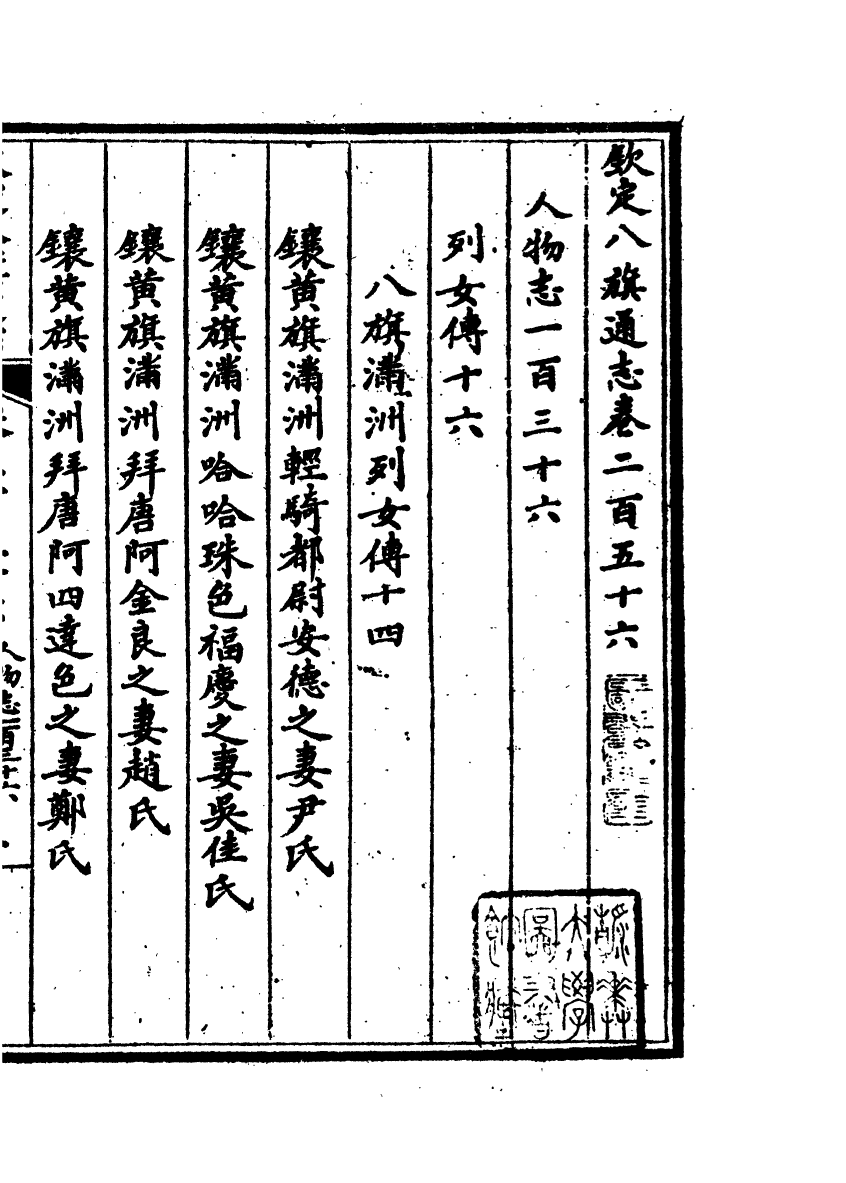 欽定八旗通志卷二百五十六
人物志一百三十六
列女傳十六
八旗滿洲列女傳十四
鑲黃旗滿洲輕騎都尉安德之妻尹氏
鑲黃旗滿洲哈哈珠色福慶之妻吳佳氏
鑲黃旗滿洲拜唐阿金良之妻趙氏
鑲黃旗滿洲拜唐阿四達色之妻鄭氏
人物志一百三十六